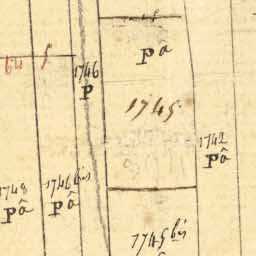 Pâ
1746
P
1745
1742
Pâ
1748
Pâ
1746 bis
Pâ
1745 bis